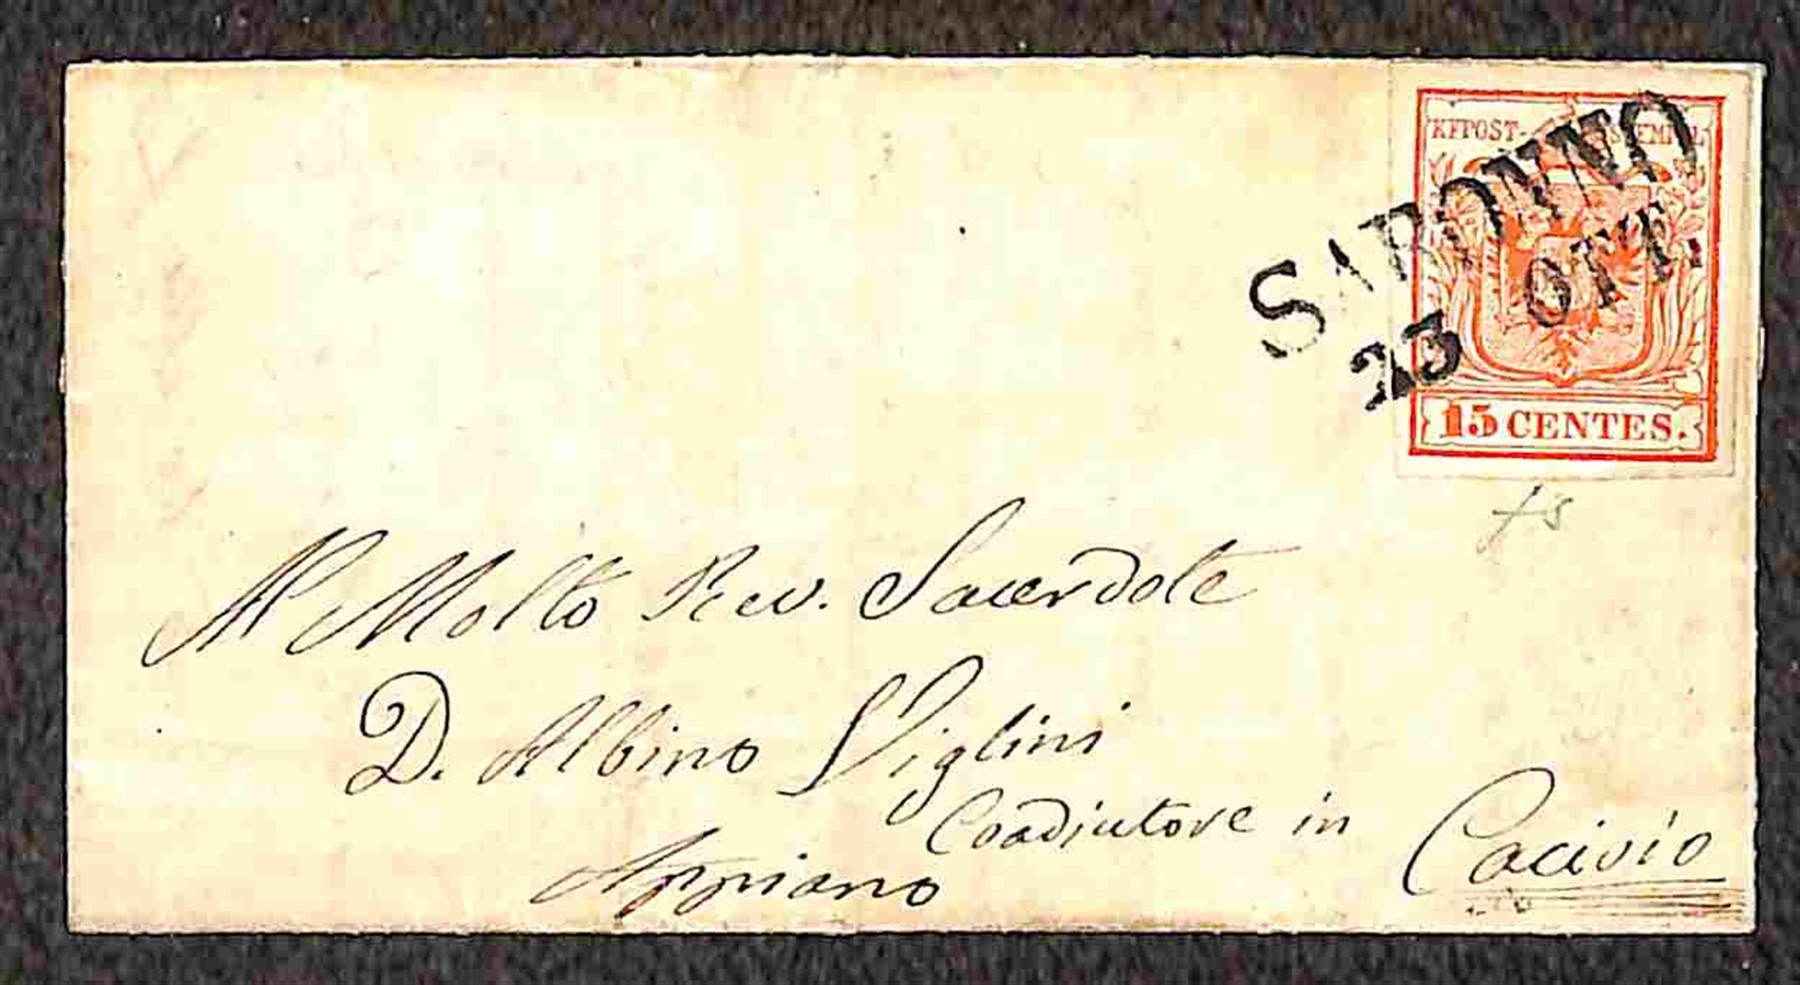 KKPOST-STEMPEL
SARONNO
23 OTT.
15 CENTES.
fs
Al Molto Rev. Sacerdote
D. Albino Viglini
Coadiutore in Cacivio
Appiano